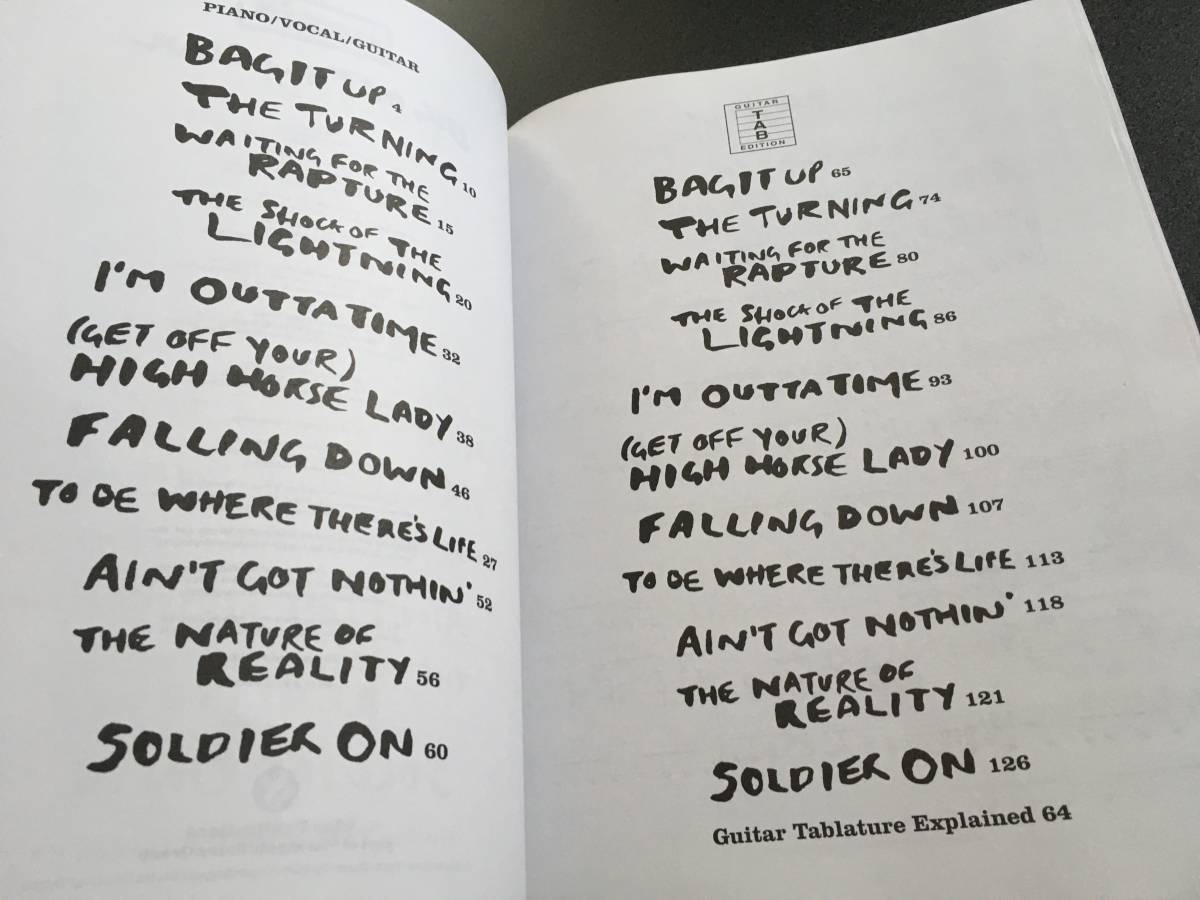 PIANO/VOCAL/GUITAR
BAG IT UP 4
THE TURNING 10
WAITING FOR THE
RAPTURE 15
THE SHOCK OF THE
LIGHTNING 20
I'M OUTTA TIME 32
(GET OFF YOUR)
HIGH HORSE LADY 38
FALLING DOWN 46
TO BE WHERE THERE'S LIFE 27
AIN'T GOT NOTHIN' 52
THE NATURE OF
REALITY 56
SOLDIER ON 60
GUITAR
TAB
EDITION
BAG IT UP 65
THE TURNING 74
WAITING FOR THE
RAPTURE 80
THE SHOCK OF THE
LIGHTNING 86
I'M OUTTA TIME 93
(GET OFF YOUR)
HIGH HORSE LADY 100
FALLING DOWN 107
TO BE WHERE THERE'S LIFE 113
AIN'T GOT NOTHIN' 118
THE NATURE OF
REALITY 121
SOLDIER ON 126
Guitar Tablature Explained 64